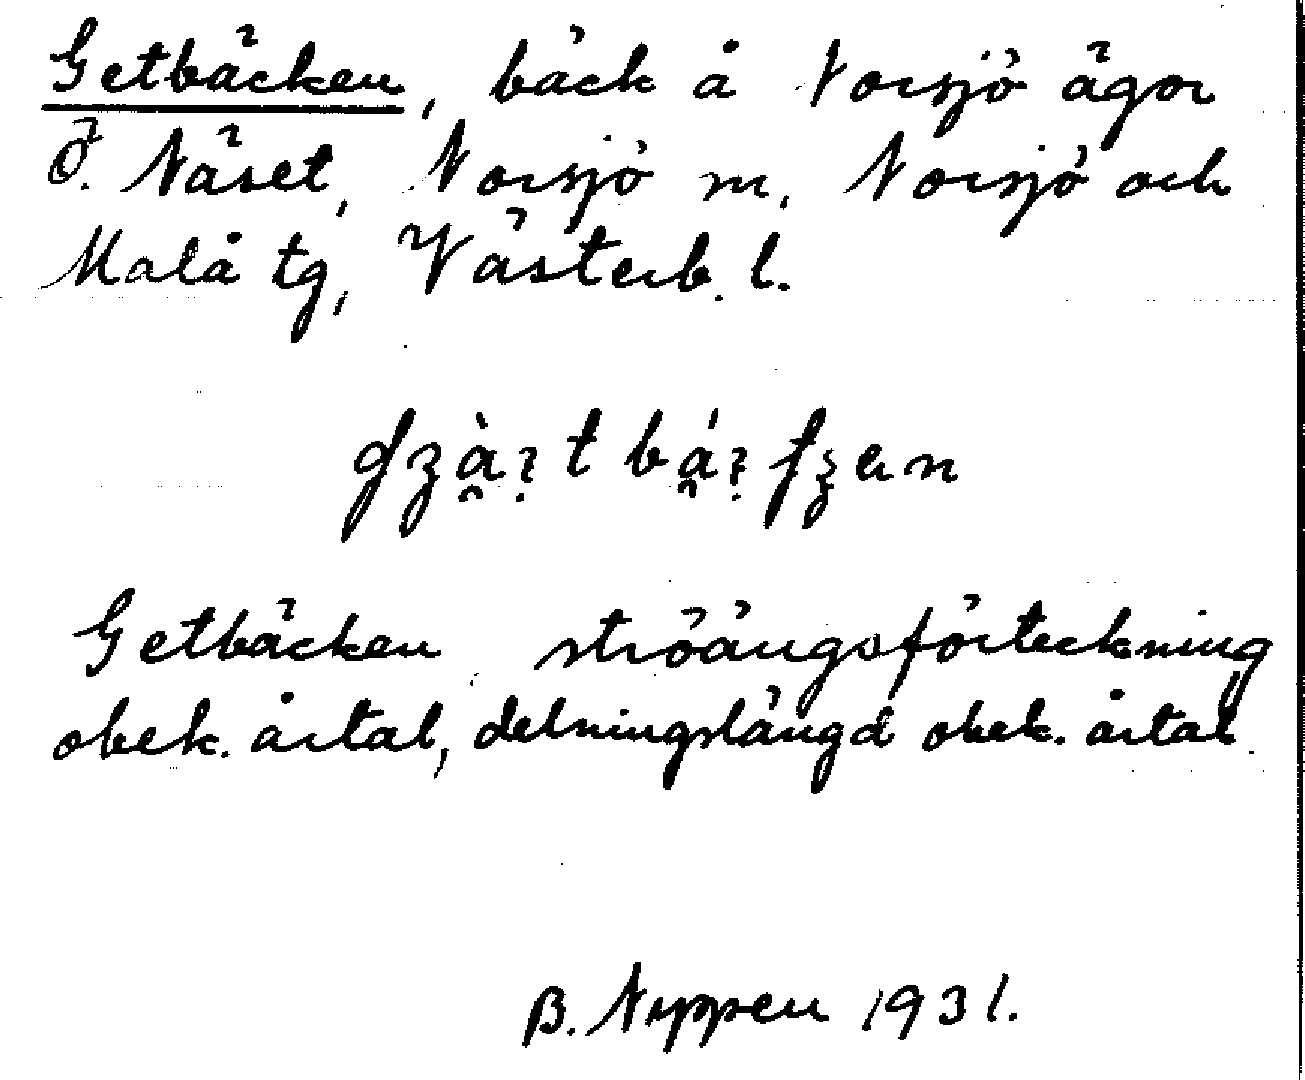 Getbäcken, bäck å Norsjö ägor
Ö. Näset, Norsjö m, Norsjö och
Malå tg, Västerb. l.
Getbäcken ströängsförteckning
obek. årtal, delningslängd obek. årtal.
B. 1931.